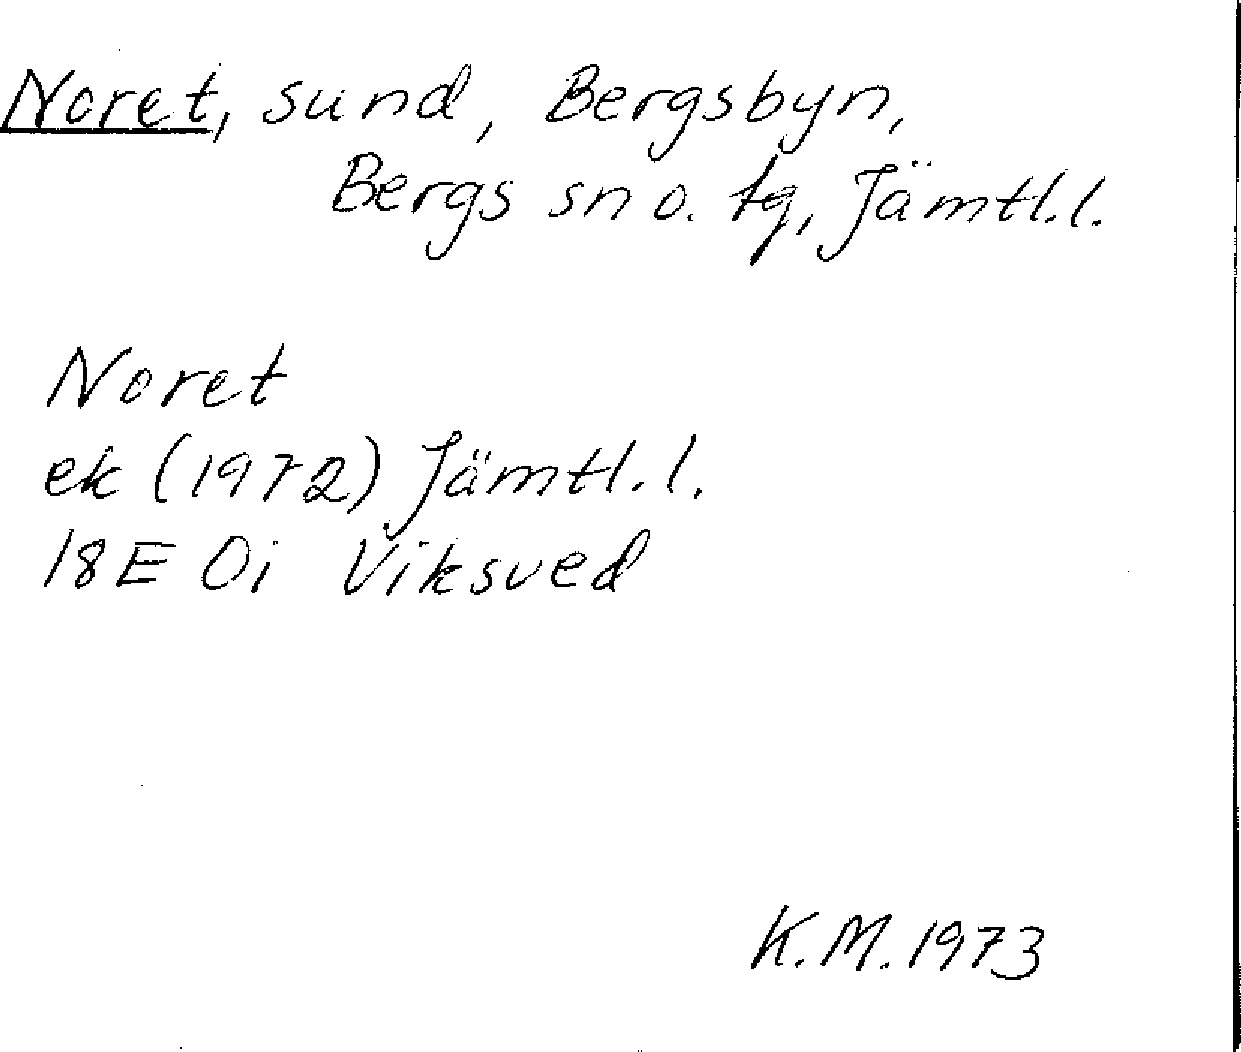 Noret, sund, Bergsbyn,
Bergs sn o. tg, Jämtl.l.
Noret
ek (1972) Jämtl.l.
18E 0i Viksved
K.M. 1973